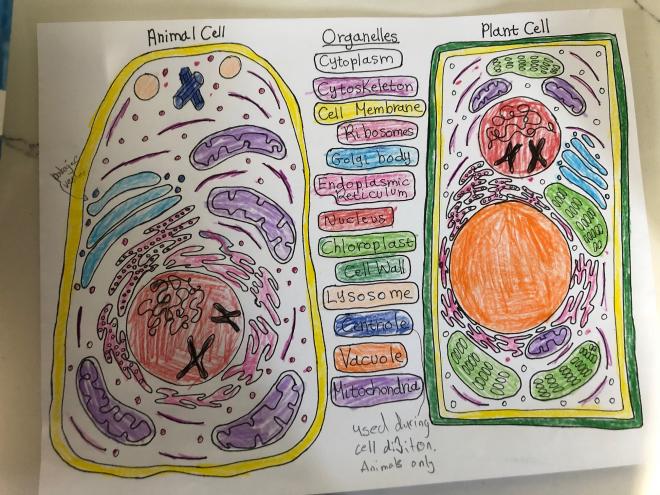 Animal Cell
Organelles
Plant Cell
Cytoplasm
Cytoskeleton
Cell Membrane
Ribosomes
Golgi body
Endoplasmic
Reticulum
Nucleus
Chloroplast
Cell Wall
Lysosome
Centriole
Vacuole
Mitochondria
used during
cell
Animals only